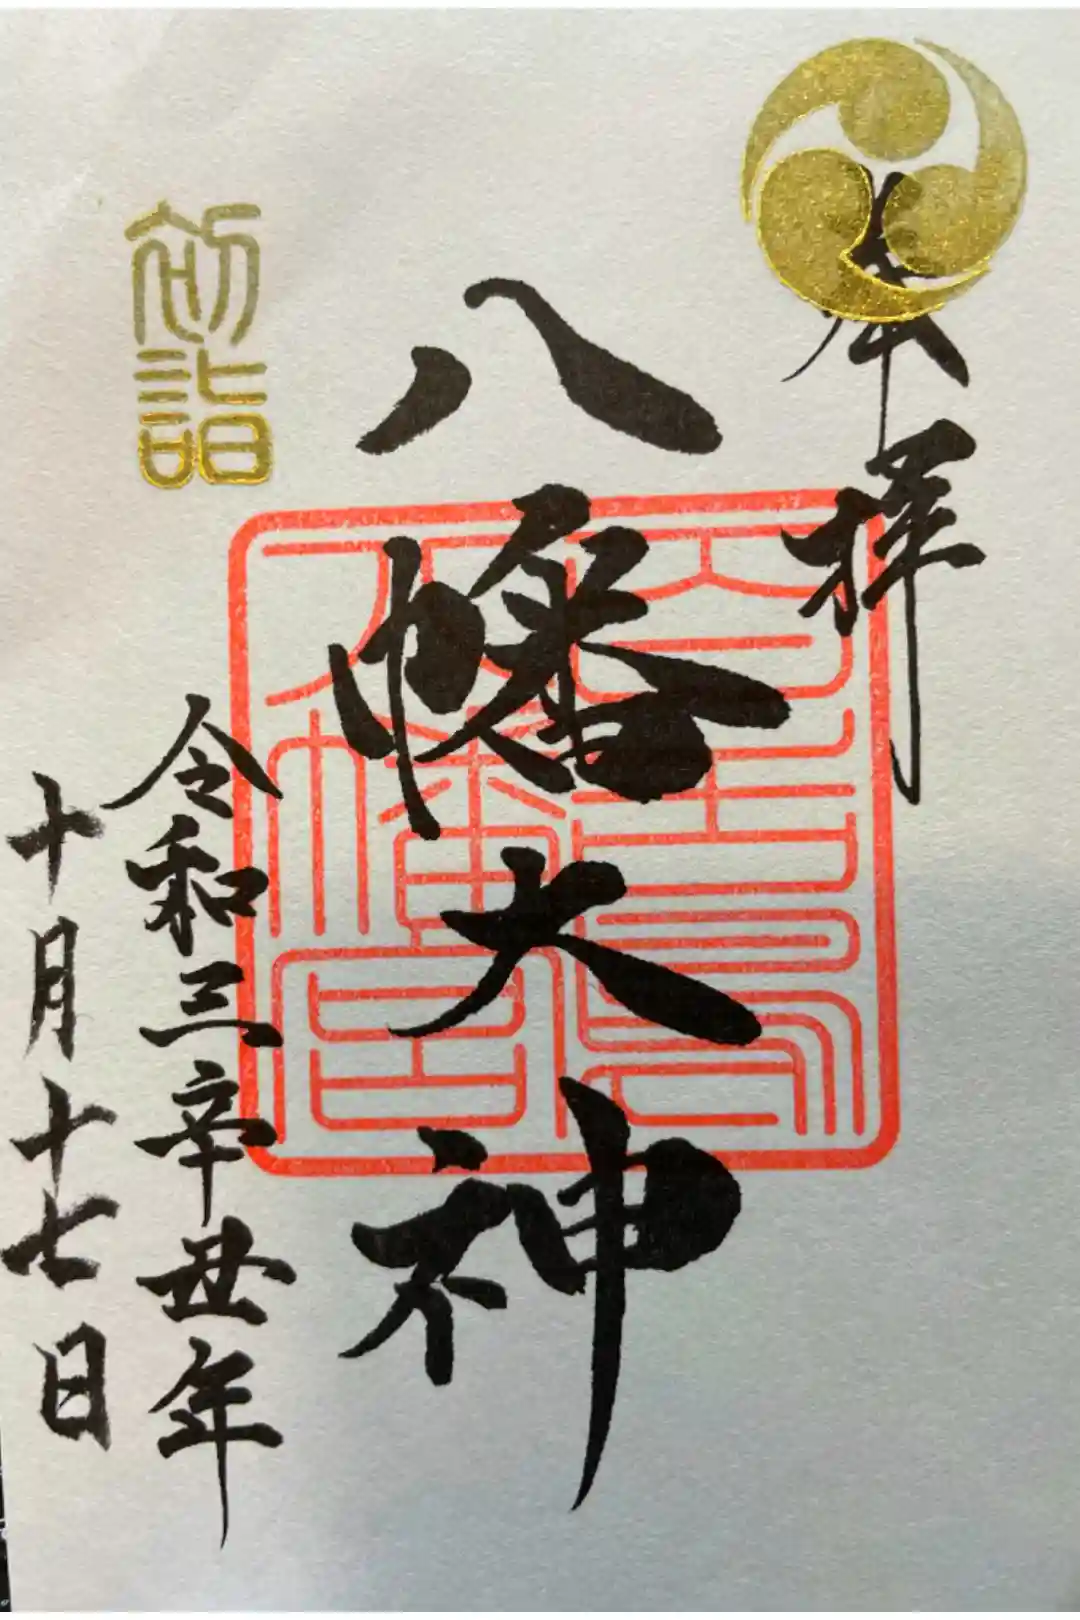 奉拝
八幡大神
八幡宮
初詣
令和三辛丑年
十月十七日